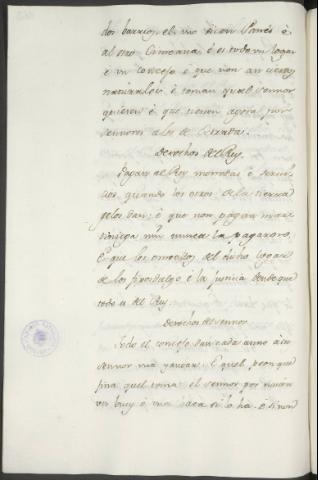 dos barrios, el uno dicen Parés è
al otro Canciana, è es todo un logar
è un concejo è que non an ciertos
naturales, è toman qual sennor
quieren è que tienen agora por
sennores a los de Estrada.
Derechos del Rey.
Pagan al Rey monedas è servi-
cios quando los otros de la tierra
gelos dan; è que non pagan mar-
tiniega nin nunca la pagaron.
E que los omecillos del dicho logar
de los fijosdalgo è la justicia dende que
todo es del Rey
Derechos del sennor
Todo el concejo dan cada anno a su
sennor una yantar: E qual peon que
fina qual toma el sennor por nución
un buey ò una vaca si lo ha. è sinon